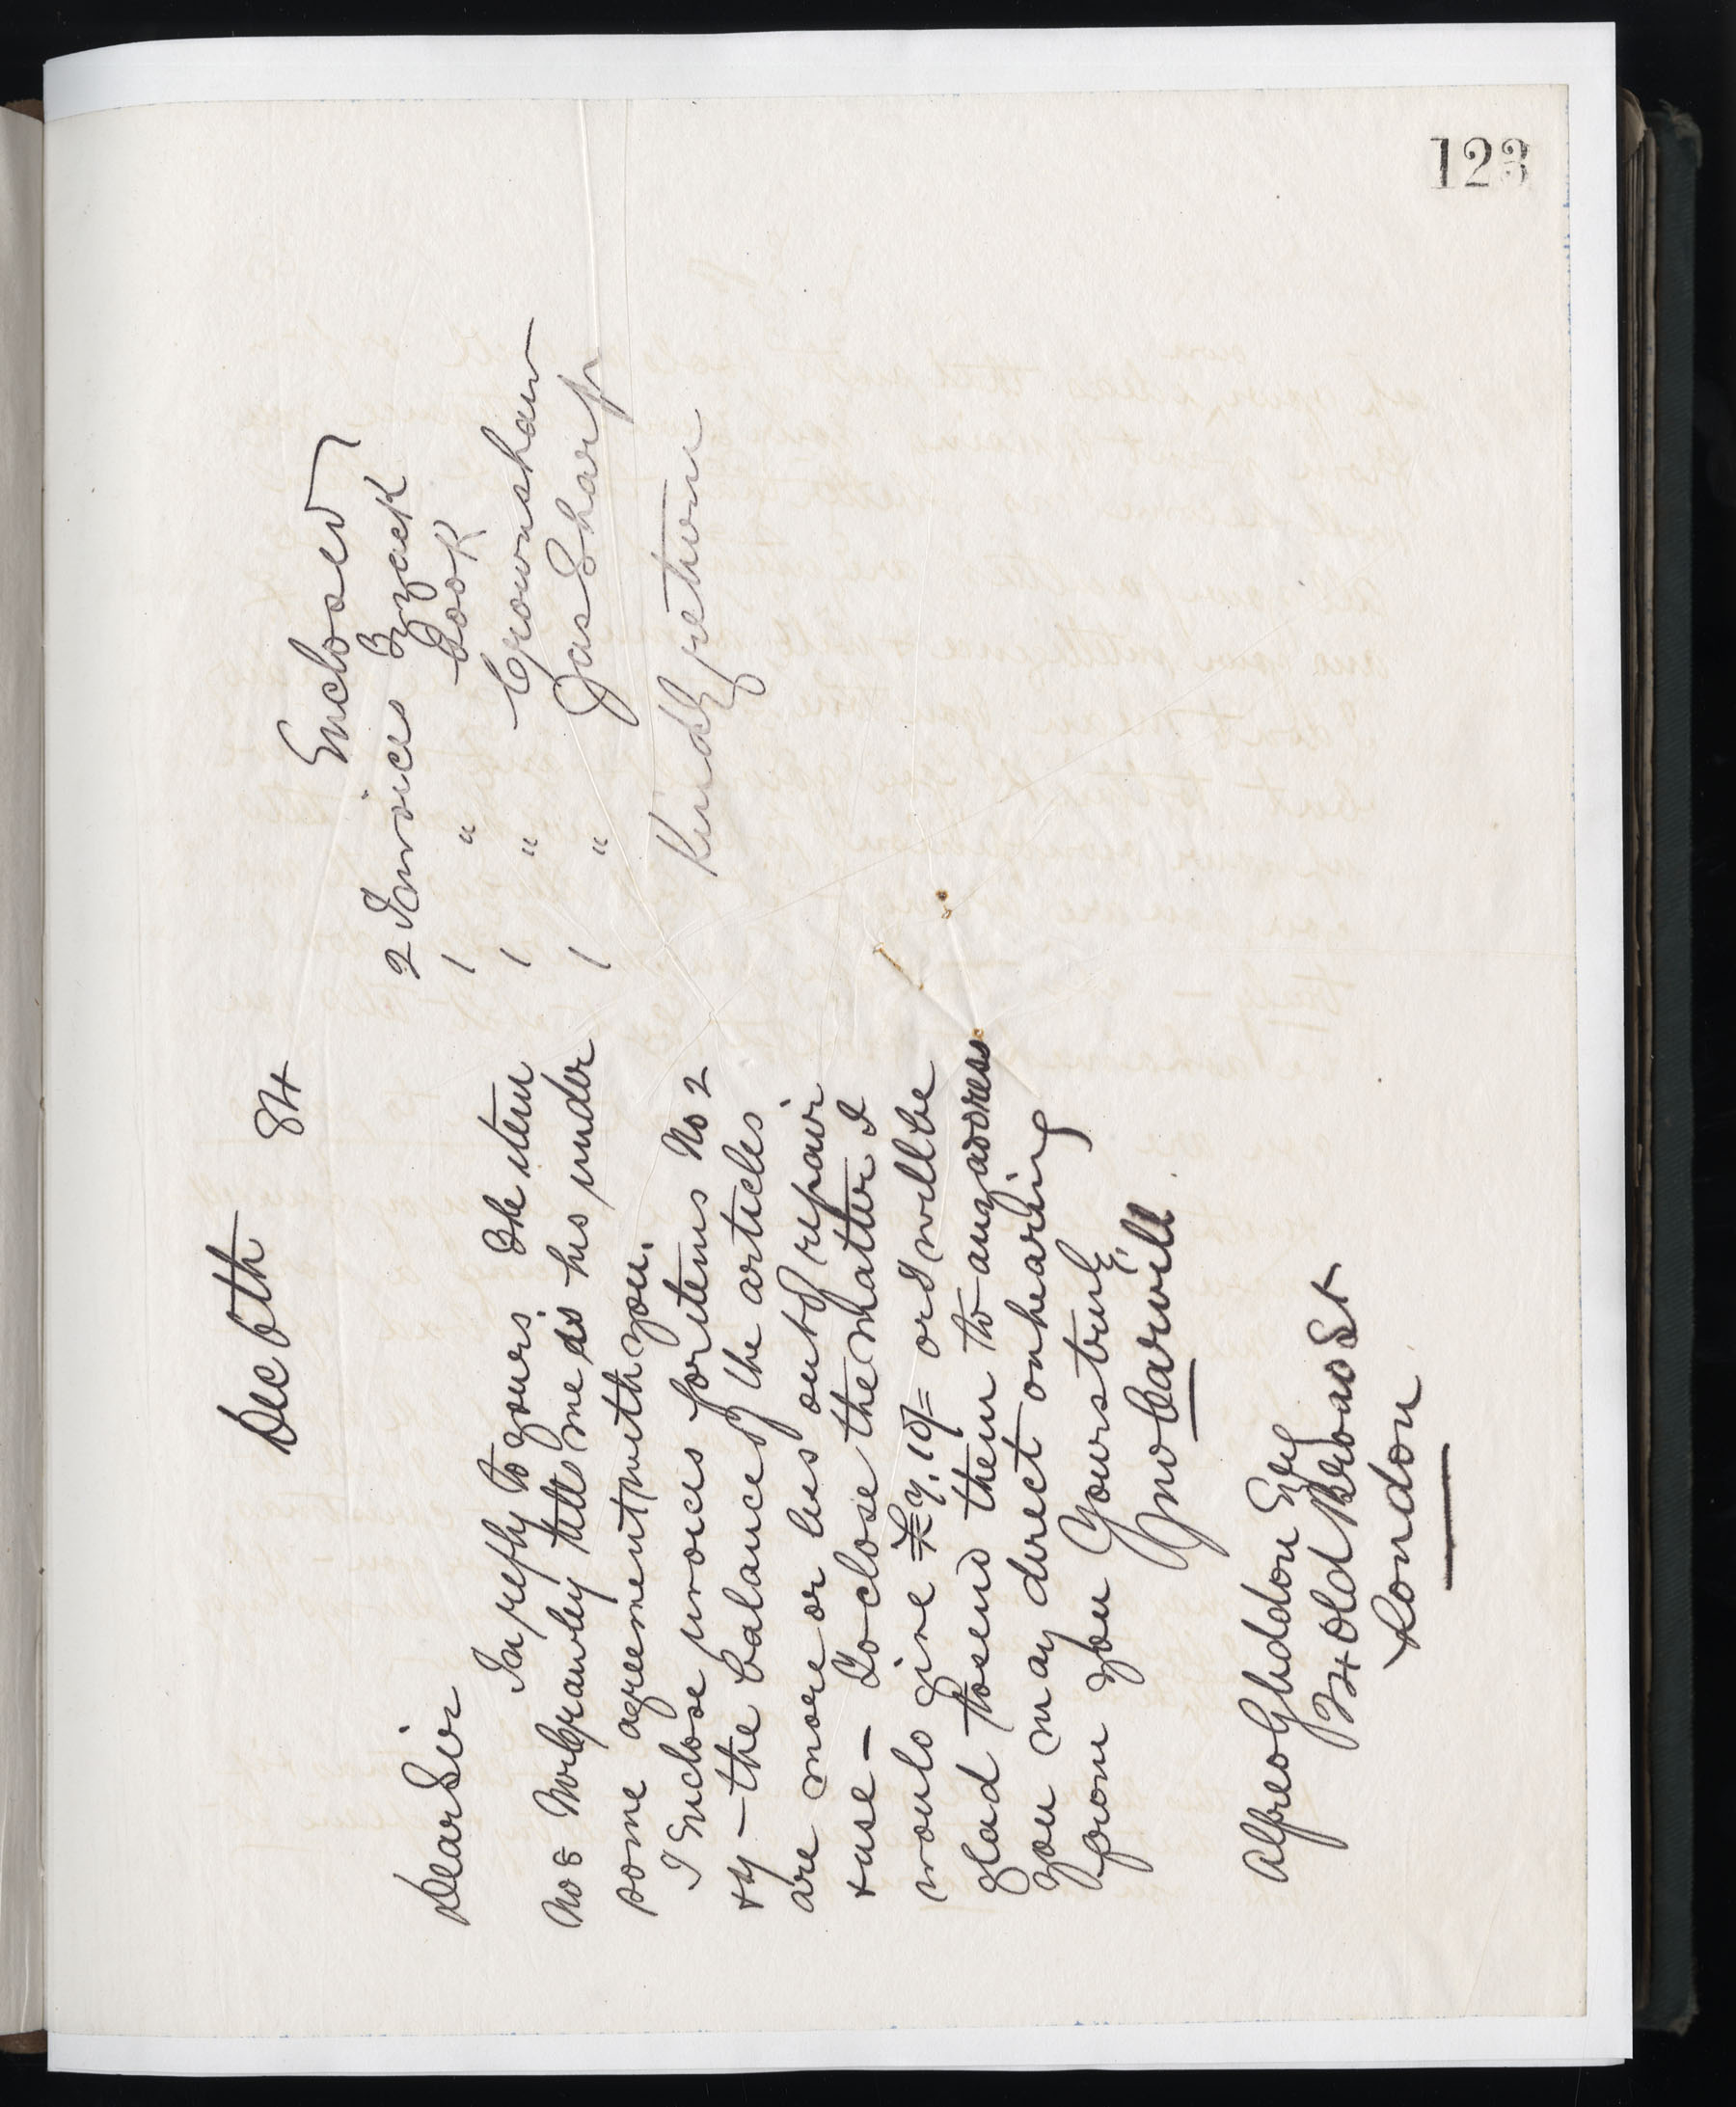 123
Dec 6th 84
Dear Sir
In reply to yours. The item
No 8 Mr Crawley tells me is his under
some agreement with you.
I Enclose invoices for items No 2
+ 4 — the balance of the articles
are more or less out of repair
+ use — To close the matter I
would give £7.10/= or I will be
glad to send them to any address
you may direct on hearing
from you Yours truly
Jno Carwill
Alfred Gliddon Esq
34 Old Broad St
London
Enclosed
2 Invoices Byzack
1 " Cook
1 " Crownshaw
1 " Jas Sharp
Kindly return